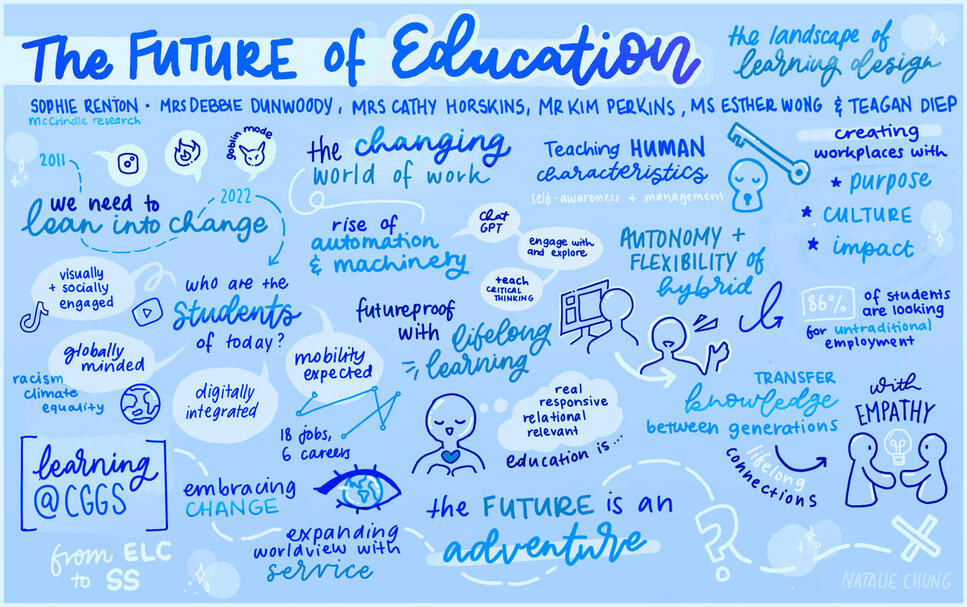 The FUTURE of Education
the landscape of
learning design
SOPHIE RENTON · MRS DEBBIE DUNWOODY, MRS CATHY HORSKINS, MR KIM PERKINS, MS ESTHER WONG & TEAGAN DIEP
McCrindle research
2011
goblin mode
we need to
lean into change
2022
the changing
world of work
Teaching HUMAN
characteristics
self-awareness + management
creating
workplaces with
* purpose
* CULTURE
* impact
rise of
automation
& machinery
Chat
GPT
engage with
and explore
teach
CRITICAL
THINKING
AUTONOMY +
FLEXIBILITY of
hybrid
visually
+ socially
engaged
who are the
students
of today?
globally
minded
racism
climate
equality
digitally
integrated
mobility
expected
18 jobs,
6 careers
futureproof
with lifelong
learning
86% of students
are looking
for untraditional
employment
real
responsive
relational
relevant
education is...
TRANSFER
knowledge
between generations
lifelong
connections
with
EMPATHY
learning
@CGGS
from ELC
to SS
embracing
CHANGE
expanding
worldview with
service
the FUTURE is an
adventure
?
NATALIE CHUNG